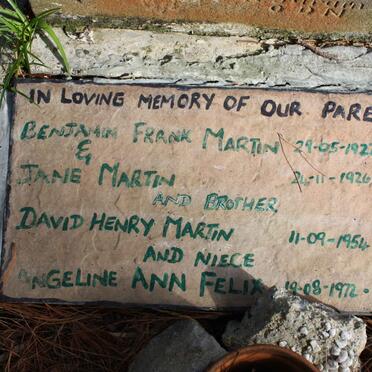 IN LOVING MEMORY OF OUR PARE
BENJAMIN FRANK MARTIN 29-05-192
&
JANE MARTIN 24-11-1926
AND BROTHER
DAVID HENRY MARTIN 11-09-1954
AND NIECE
ANGELINE ANN FELIX 19-08-1972-